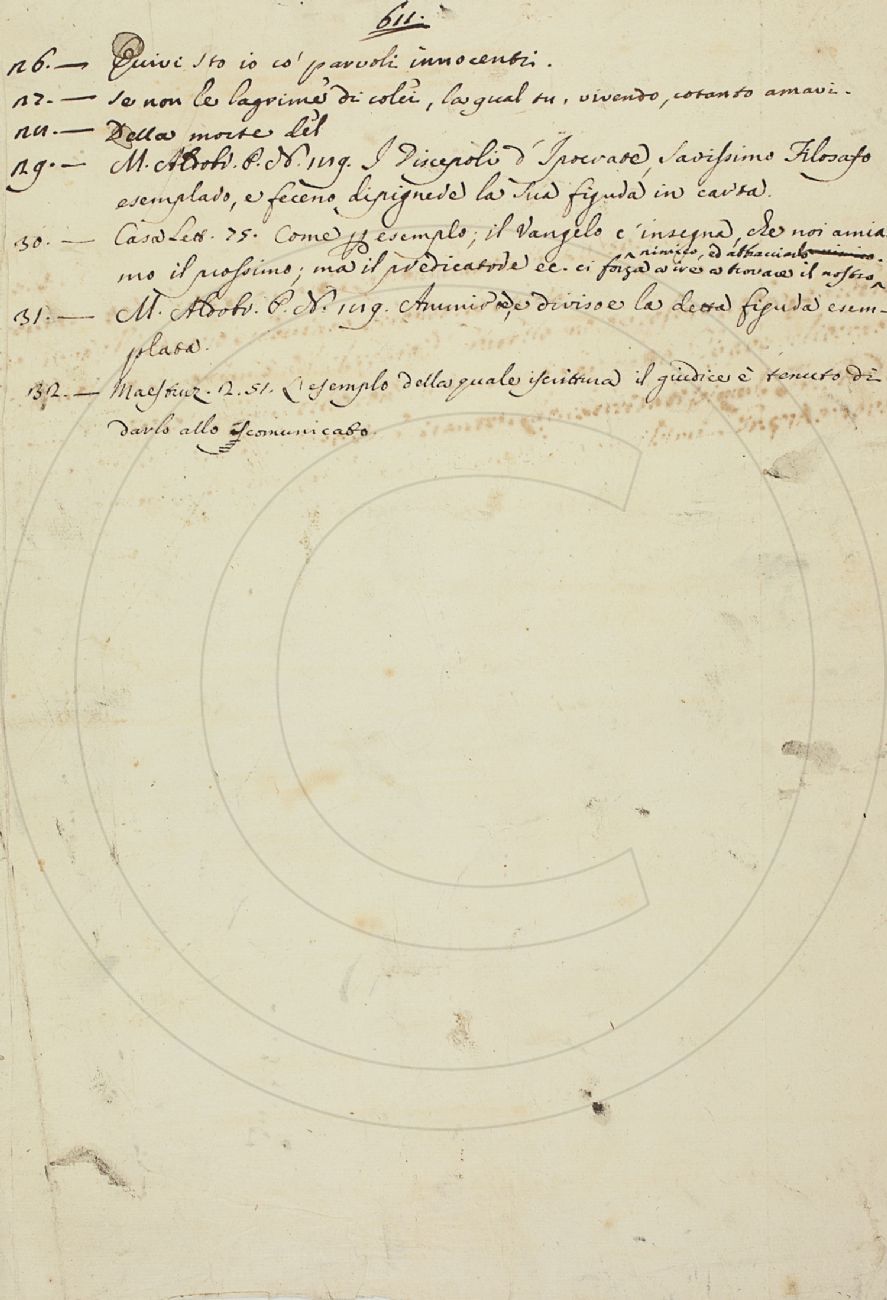 611.
126. — Quivi sto io co' parvoli innocenti.
127. — Se non le lagrime di colei, la qual tu, vivendo, cotanto amavi.
128. — Della morte del
129. — M. Aldobr. P. N. 119. I Discepoli d'Ipocrate, Savissimo Filosafo
esemplaro, e feceno dipignere la sua figura in carta.
130. — Casa Lett. 75. Come p esemplo; il Vangelo c'insegna, che noi amia
mo il prossimo; ma il predicatore ec. ci forza a ire a trovare il nostro
nimico, ed abbracciarlo.
131. — M. Aldobr. P. N. 119. divisoe la detta figura esem-
plata.
132. — Maestruz. 2. 51. L'esemplo della quale iscrittura il giudice è tenuto di
darlo allo scomunicato.